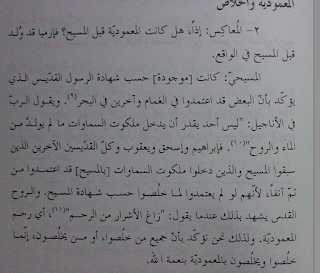 المعمودية والخلاص
٢- المُعاكِس: إذاً، هل كانت المعموديّة قبل المسيح؟ فإرميا قد وُلد
قبل المسيح في الواقع.
المسيحيّ: كانت [موجودة] حسب شهادة الرسول القدّيس الذي
يؤكّد بأنّ البعض قد اعتمدوا في الغمام وآخرين في البحر(٩). ويقول الربّ
في الأناجيل: "ليس أحد يقدر أن يدخل ملكوت السماوات ما لم يولد من
الماء والروح"(١٠). فإبراهيم وإسحق ويعقوب وكلّ القدّيسين الآخرين الذين
سبقوا المسيح والذين دخلوا ملكوت السماوات [بالمسيح] قد اعتمدوا من
ثمّ آنفاً، لأنّهم لو لم يعتمدوا لما خلُصوا حسب شهادة المسيح. والروح
القدس يشهد بذلك عندما يقول: "زاغ الأشرار من الرحم"(١١)، أي رحم
المعموديّة. ولذلك نحن نؤكّد بأنّ جميع من خلُصوا، أو من يخلُصون، إنّما
خلُصوا ويخلُصون بالمعموديّة بنعمة الله.